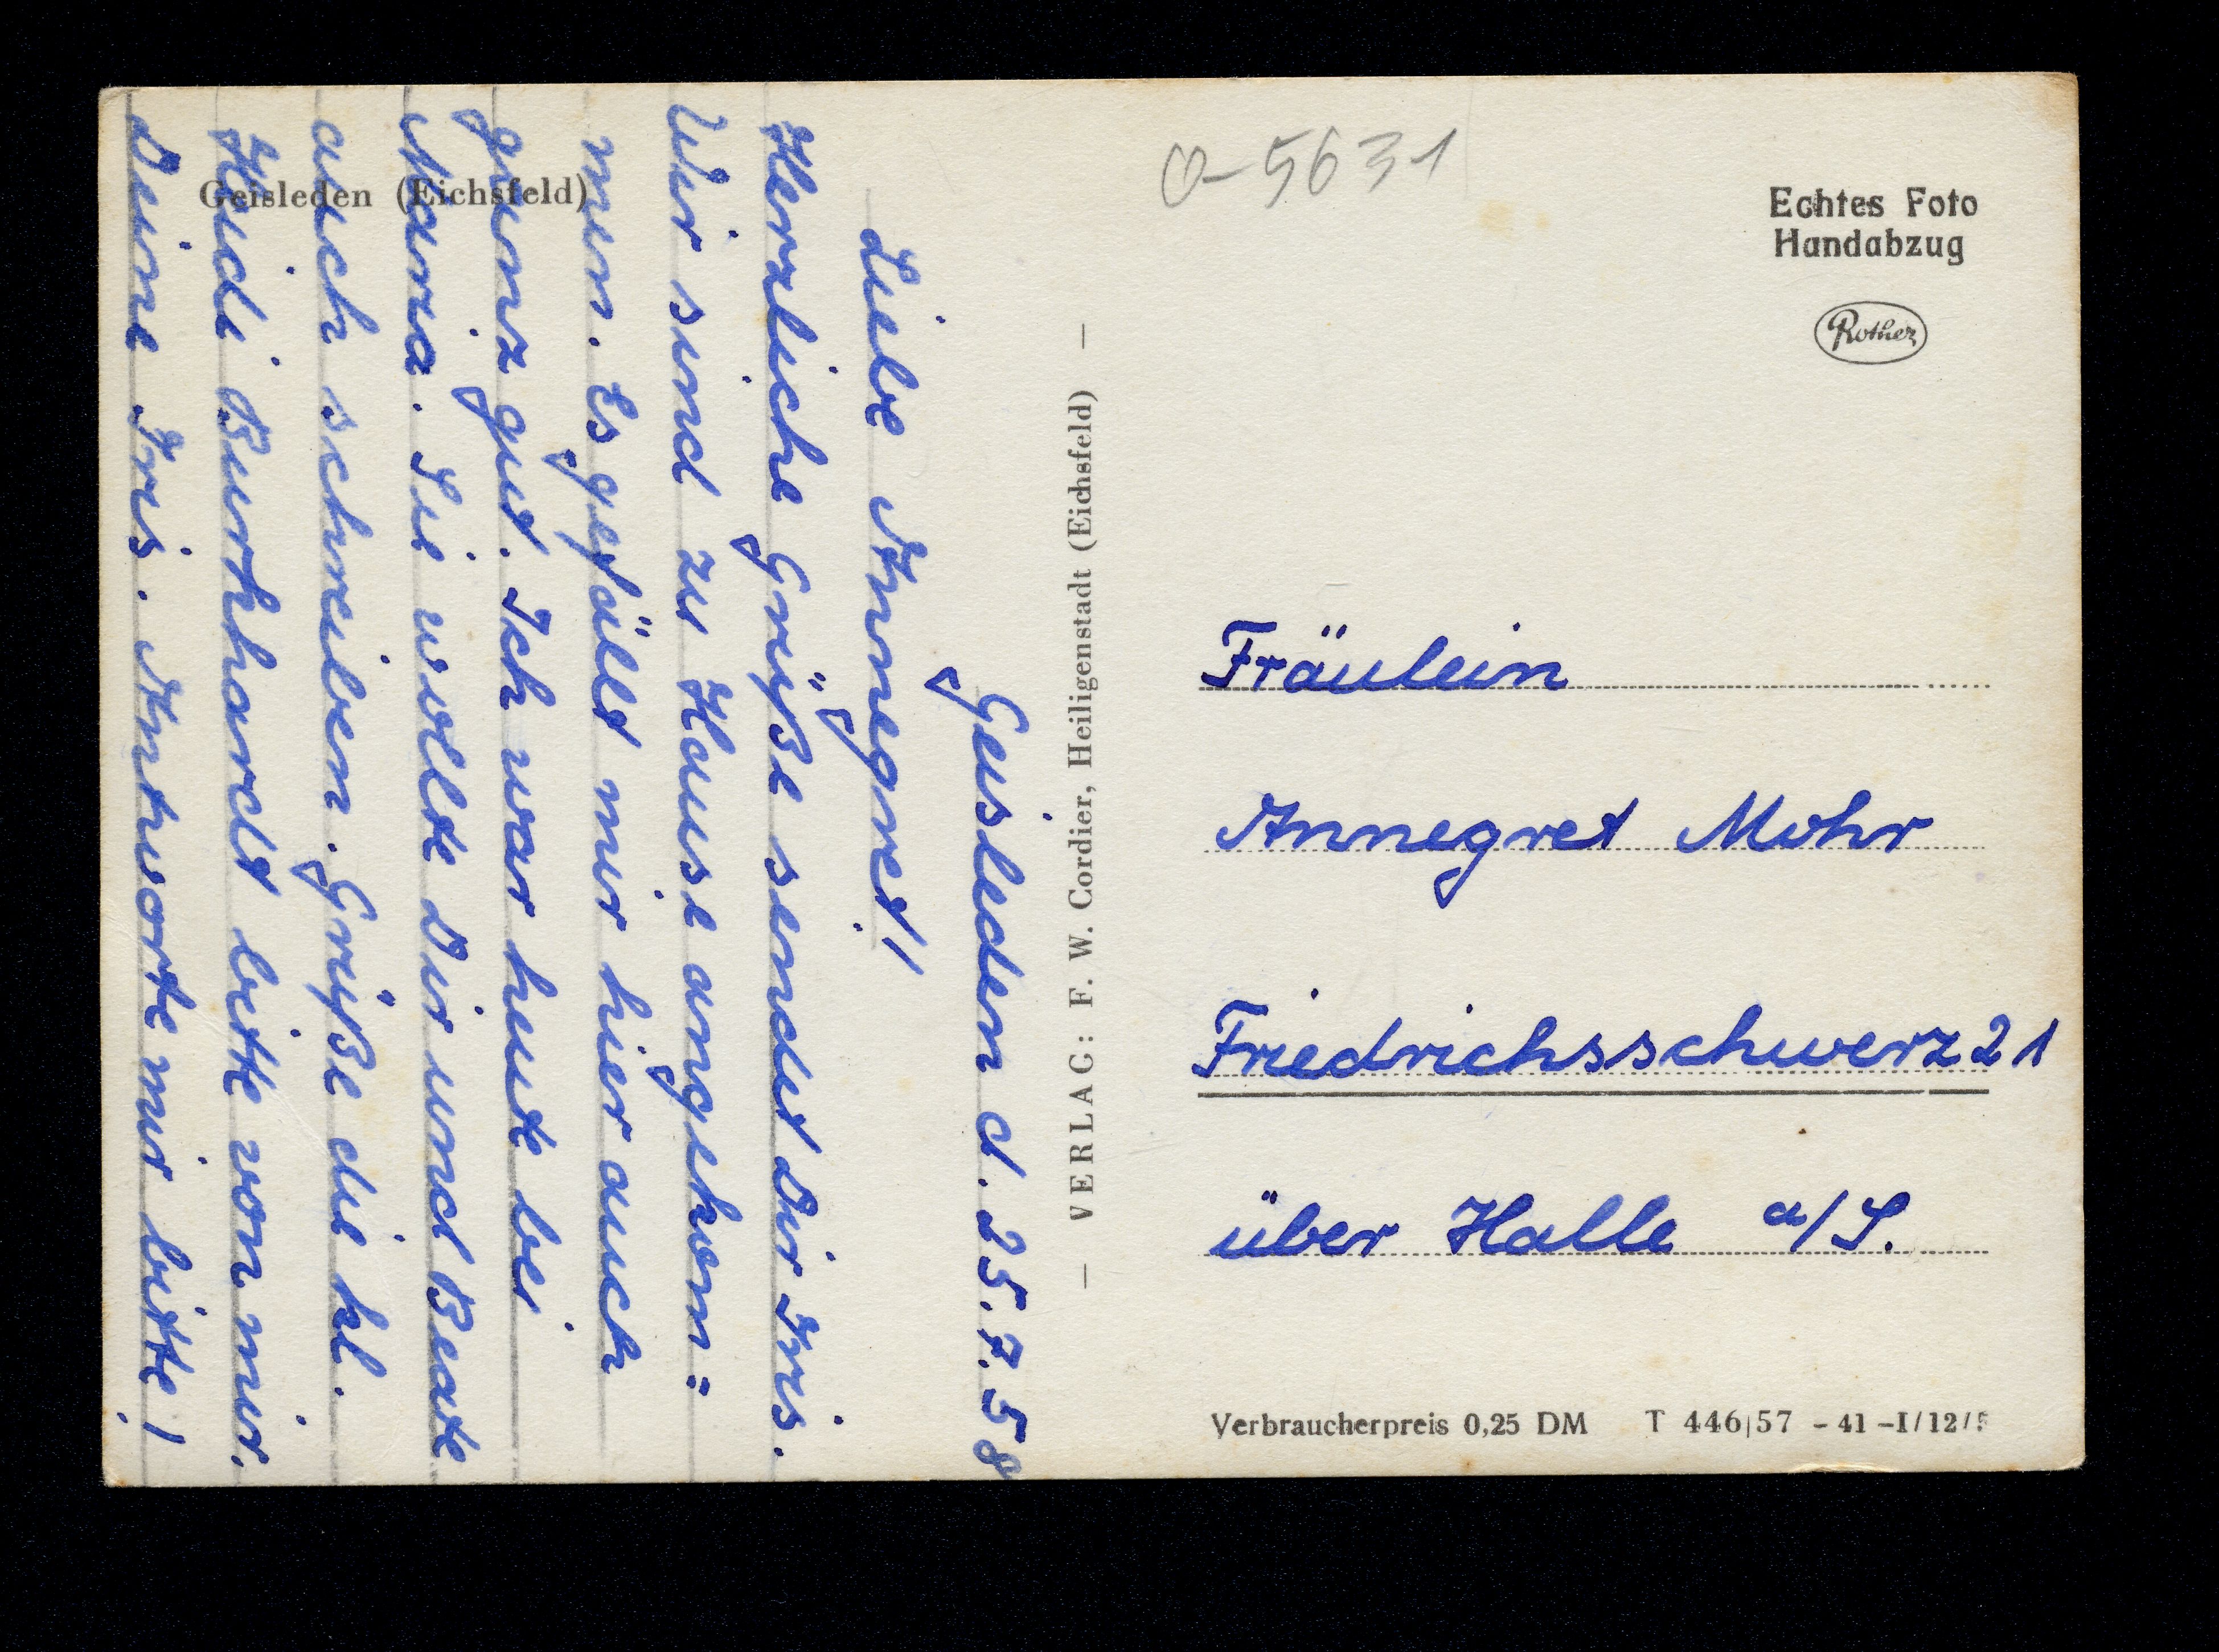 Geisleden (Eichsfeld)
Geisleden d. 25.7.58
Liebe Annegret!
Herzliche Grüße sendet Dir Iris.
Wir sind zu Hause angekom=
men. Es gefällt mir hier auch
ganz gut. Ich war heute bei
Maria. Sie wollte Dir und Beate
auch schreiben. Grüße die kl.
Heidi Burkhardt bitte von mir.
Deine Iris. Antworte mir bitte!
— VERLAG: F. W. Cordier, Heiligenstadt (Eichsfeld) —
0-5631
Echtes Foto
Handabzug
Rother
Fräulein
Annegret Mohr
Friedrichsschwerz 21
über Halle a/S.
Verbraucherpreis 0,25 DM T 446/57 - 41 -I/12/5